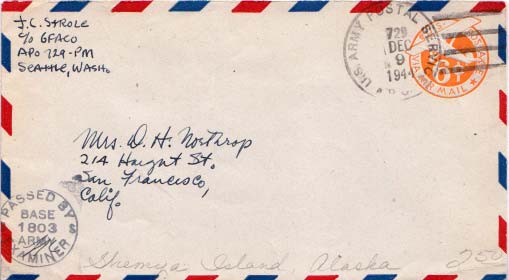 J.C. STROLE
c/o GFACO
APO 729-PM
SEATTLE, WASH.
U.S. ARMY POSTAL SERVICE
729
DEC
9
1944
VIA AIR MAIL
6¢
Mrs. D. H. Northrop
214 Haight St.
San Francisco,
Calif.
PASSED BY
BASE
1803
ARMY
EXAMINER
Shemya Island, Alaska
250